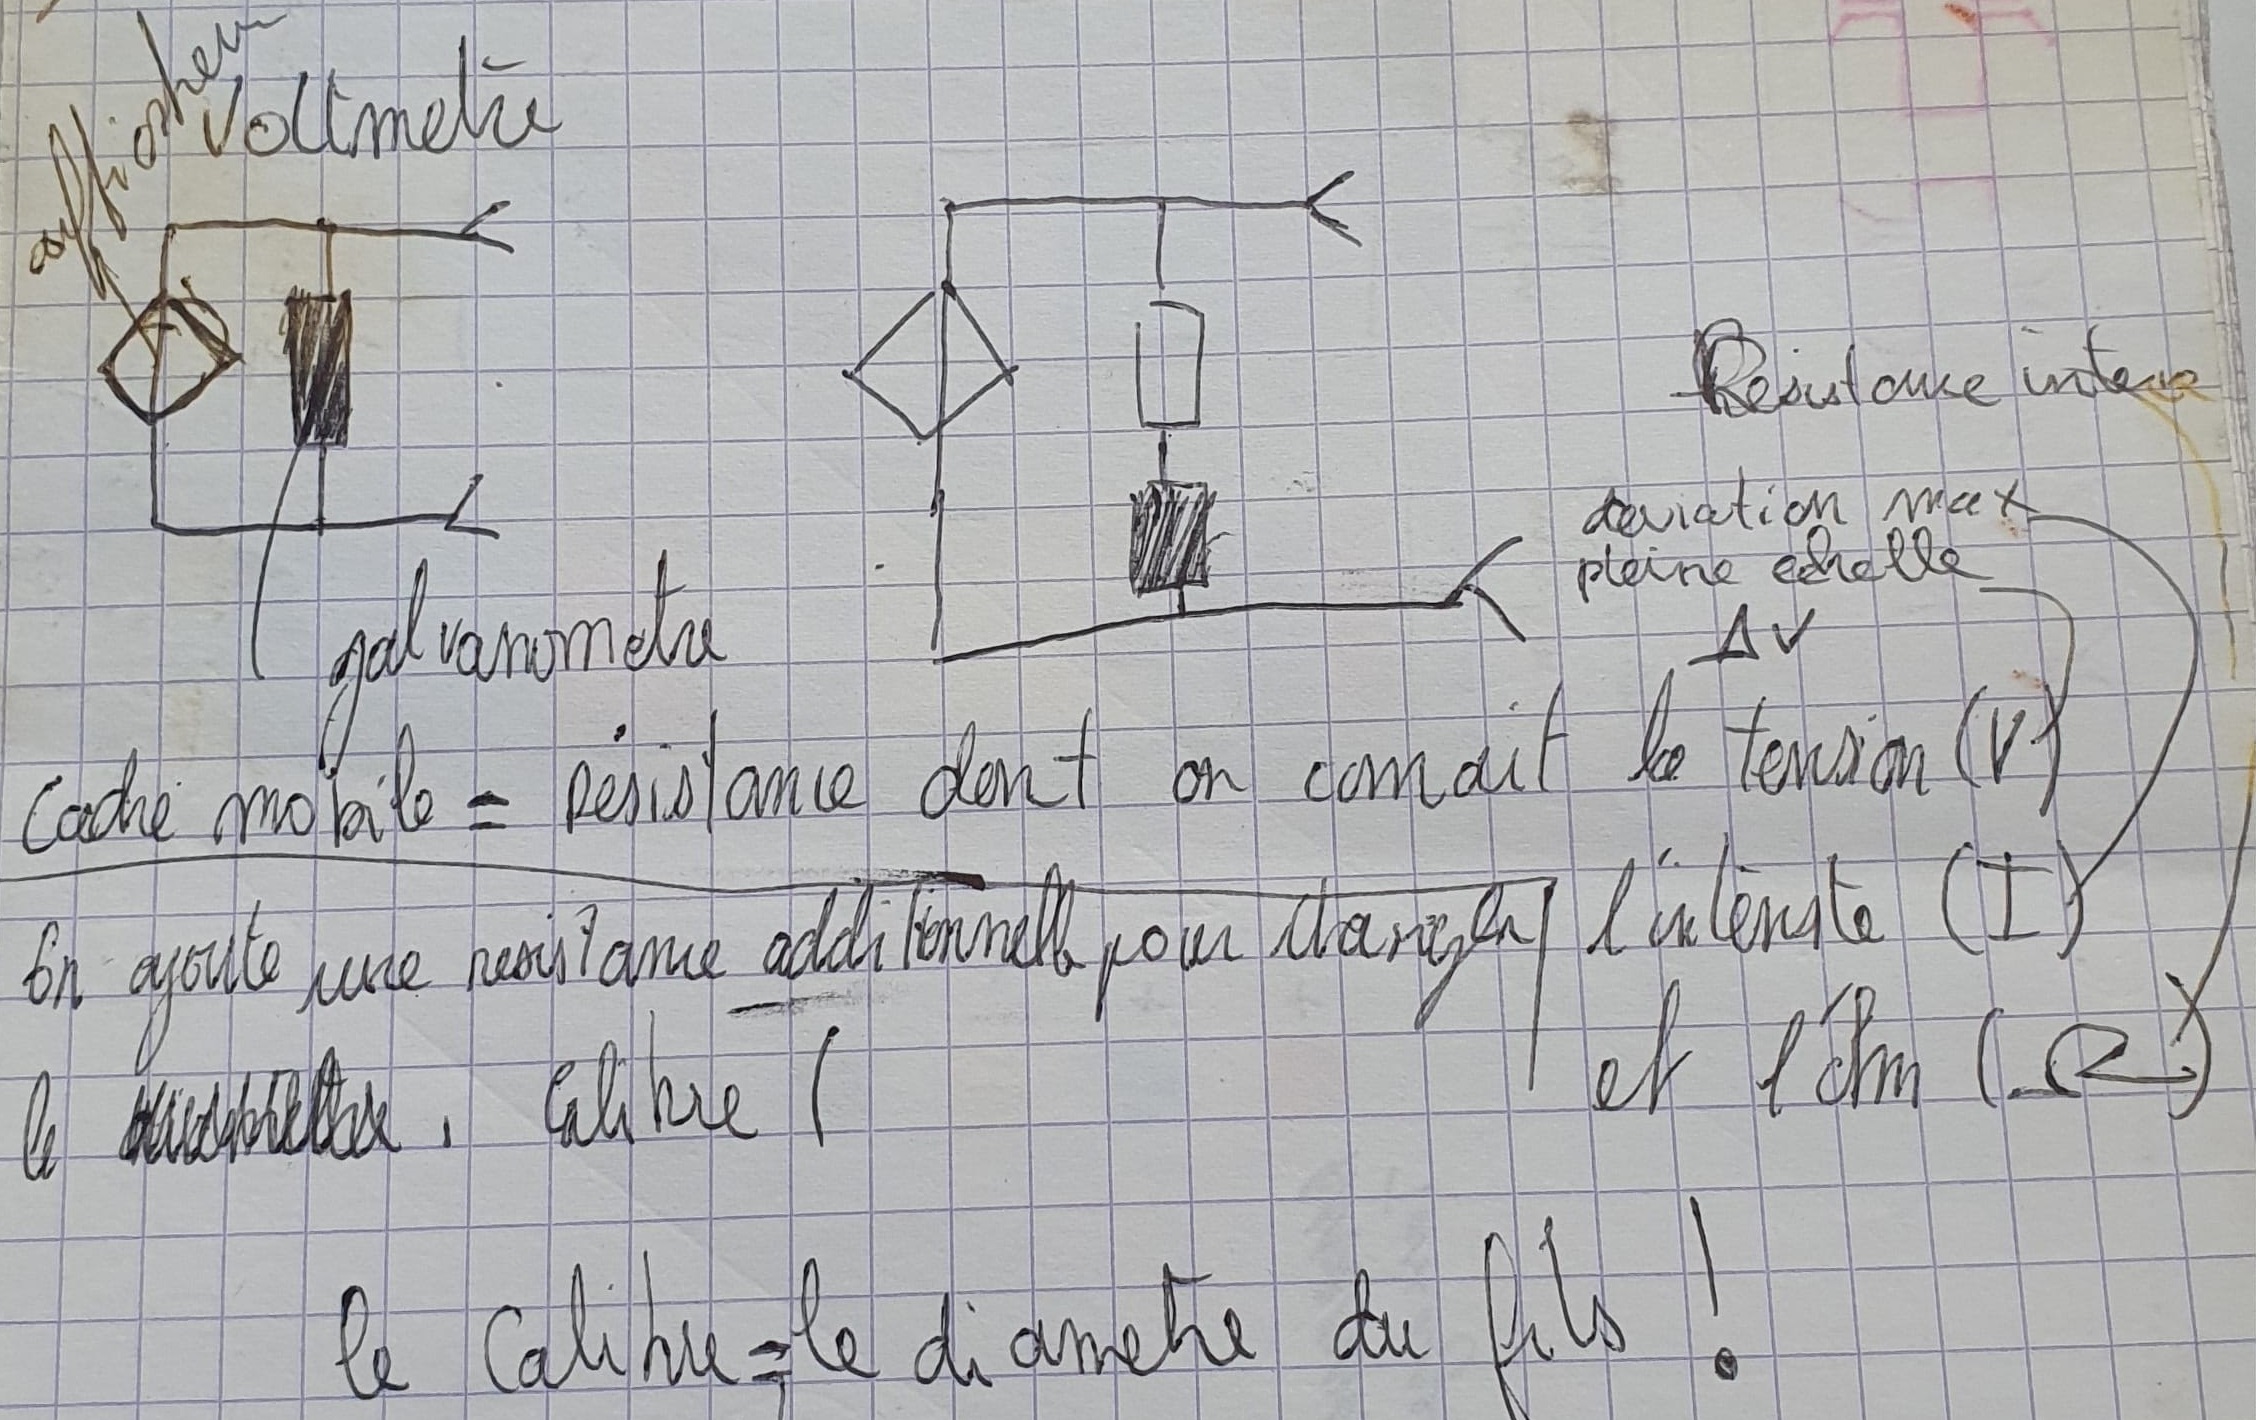 afficheur
Voltmetre
Resistance interne
deviation max
pleine echelle
ΔV
galvanometre
Cadre mobile = résistance dont on connait la tension (V)
l'intensite (I)
et l'ohm (Ω)
On ajoute une resistance additionnelle pour changer
le
calibre (
le calibre = le diametre du fils !